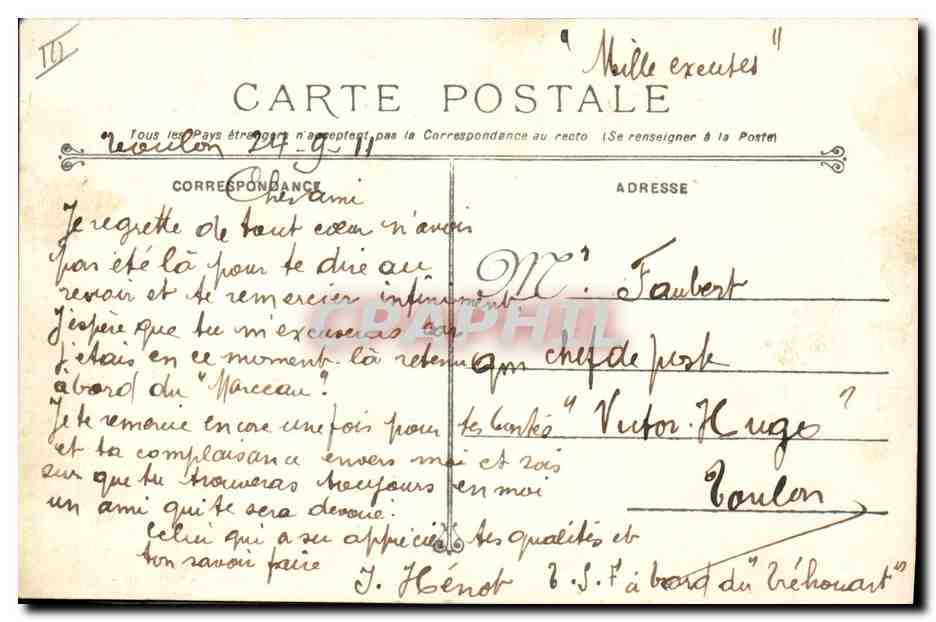 III
" Mille excuses "
CARTE POSTALE
Tous les Pays étrangers n'acceptent pas la Correspondance au recto (Se renseigner à la Poste)
Toulon 24-9-11
CORRESPONDANCE
Cher ami
Je regrette de tout cœur n'avoir
pas été là pour te dire au
revoir et te remercier infiniment
J'espère que tu m'excuseras car
j'étais en ce moment-là retenu
à bord du "Marceau".
Je te remercie encore une fois pour tes bontés
et ta complaisance envers moi et sois
sur que tu trouveras toujours en moi
un ami qui te sera dévoué.
Celui qui a su apprécier tes qualités et
ton savoir faire
J. Hénot T.S.F à bord du "Tréhouart"
ADRESSE
M. Faubert
chef de poste
" Victor-Hugo "
Toulon
CPAPHIL